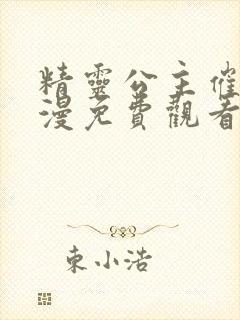 精靈公主催
漫免費觀看
東小浩